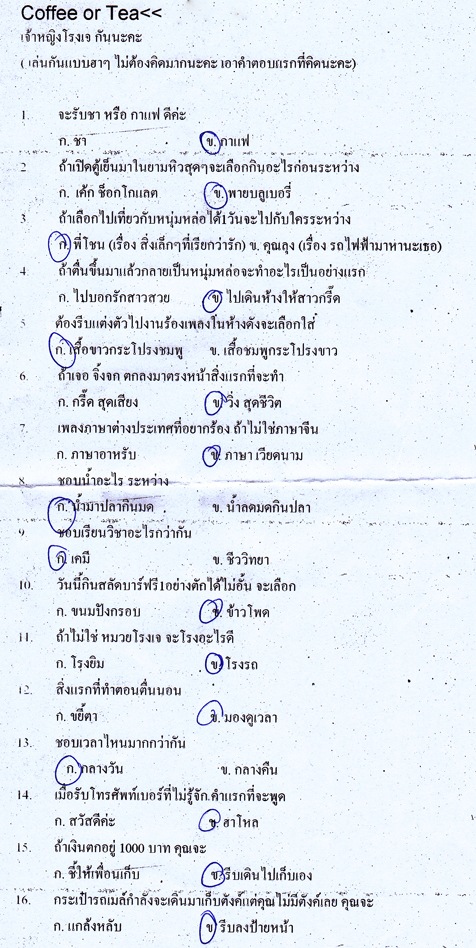 Coffee or Tea<<
เจ้าหญิงโรงเจ กันนะคะ
( เล่นกันแบบฮาๆ ไม่ต้องคิดมากนะคะ เอาคำตอบแรกที่คิดนะคะ)
1. จะรับชา หรือ กาแฟ ดีค่ะ
ก. ชา ข. กาแฟ
2 ถ้าเปิดตู้เย็นมาในยามหิวสุดๆจะเลือกกินอะไรก่อนระหว่าง
ก. เค้ก ช็อกโกแลต ข. พายบลูเบอรี่
3. ถ้าเลือกไปเที่ยวกับหนุ่มหล่อได้1วันจะไปกับใครระหว่าง
ก. พี่โชน (เรื่อง สิ่งเล็กๆที่เรียกว่ารัก) ข. คุณลุง (เรื่อง รถไฟฟ้ามาหานะเธอ)
4. ถ้าตื่นขึ้นมาแล้วกลายเป็นหนุ่มหล่อจะทำอะไรเป็นอย่างแรก
ก. ไปบอกรักสาวสวย ข. ไปเดินห้างให้สาวกรี๊ด
5 ต้องรีบแต่งตัวไปงานร้องเพลงในห้างดังจะเลือกใส่
ก. เสื้อขาวกระโปรงชมพู ข. เสื้อชมพูกระโปรงขาว
6. ถ้าเจอ จิ้งจก ตกลงมาตรงหน้าสิ่งแรกที่จะทำ
ก. กรี๊ด สุดเสียง ข. วิ่ง สุดชีวิต
7. เพลงภาษาต่างประเทศที่อยากร้อง ถ้าไม่ใช่ภาษาจีน
ก. ภาษาอาหรับ ข. ภาษา เวียดนาม
8. ชอบน้ำอะไร ระหว่าง
ก. น้ำมาปลากินมด ข. น้ำลดมดกินปลา
9. ชอบเรียนวิชาอะไรกว่ากัน
ก. เคมี ข. ชีววิทยา
10. วันนี้กินสลัดบาร์ฟรี1อย่างตักได้ไม่อั้น จะเลือก
ก. ขนมปังกรอบ ข. ข้าวโพด
11. ถ้าไม่ใช่ หมวยโรงเจ จะโรงอะไรดี
ก. โรงยิม ข. โรงรถ
12. สิ่งแรกที่ทำตอนตื่นนอน
ก. ขยี้ตา ข. มองดูเวลา
13. ชอบเวลาไหนมากกว่ากัน
ก. กลางวัน ข. กลางคืน
14. เมื่อรับโทรศัพท์เบอร์ที่ไม่รู้จัก คำแรกที่จะพูด
ก. สวัสดีค่ะ ข. ฮาโหล
15. ถ้าเงินตกอยู่ 1000 บาท คุณจะ
ก. ชี้ให้เพื่อนเก็บ ข. รีบเดินไปเก็บเอง
16. กระเป๋ารถเมล์กำลังจะเดินมาเก็บตังค์แต่คุณไม่มีตังค์เลย คุณจะ
ก. แกล้งหลับ ข. รีบลงป้ายหน้า